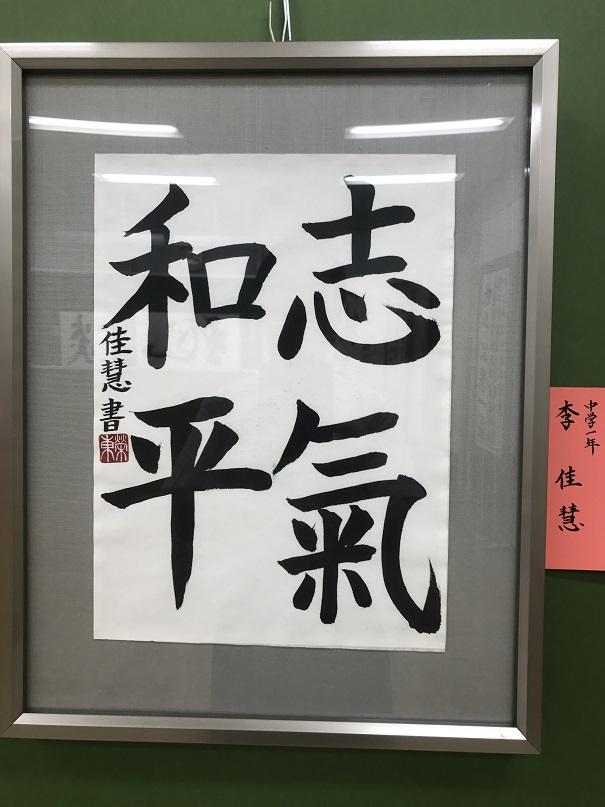 志氣
和平
佳慧書
榮東
中学一年
李佳慧